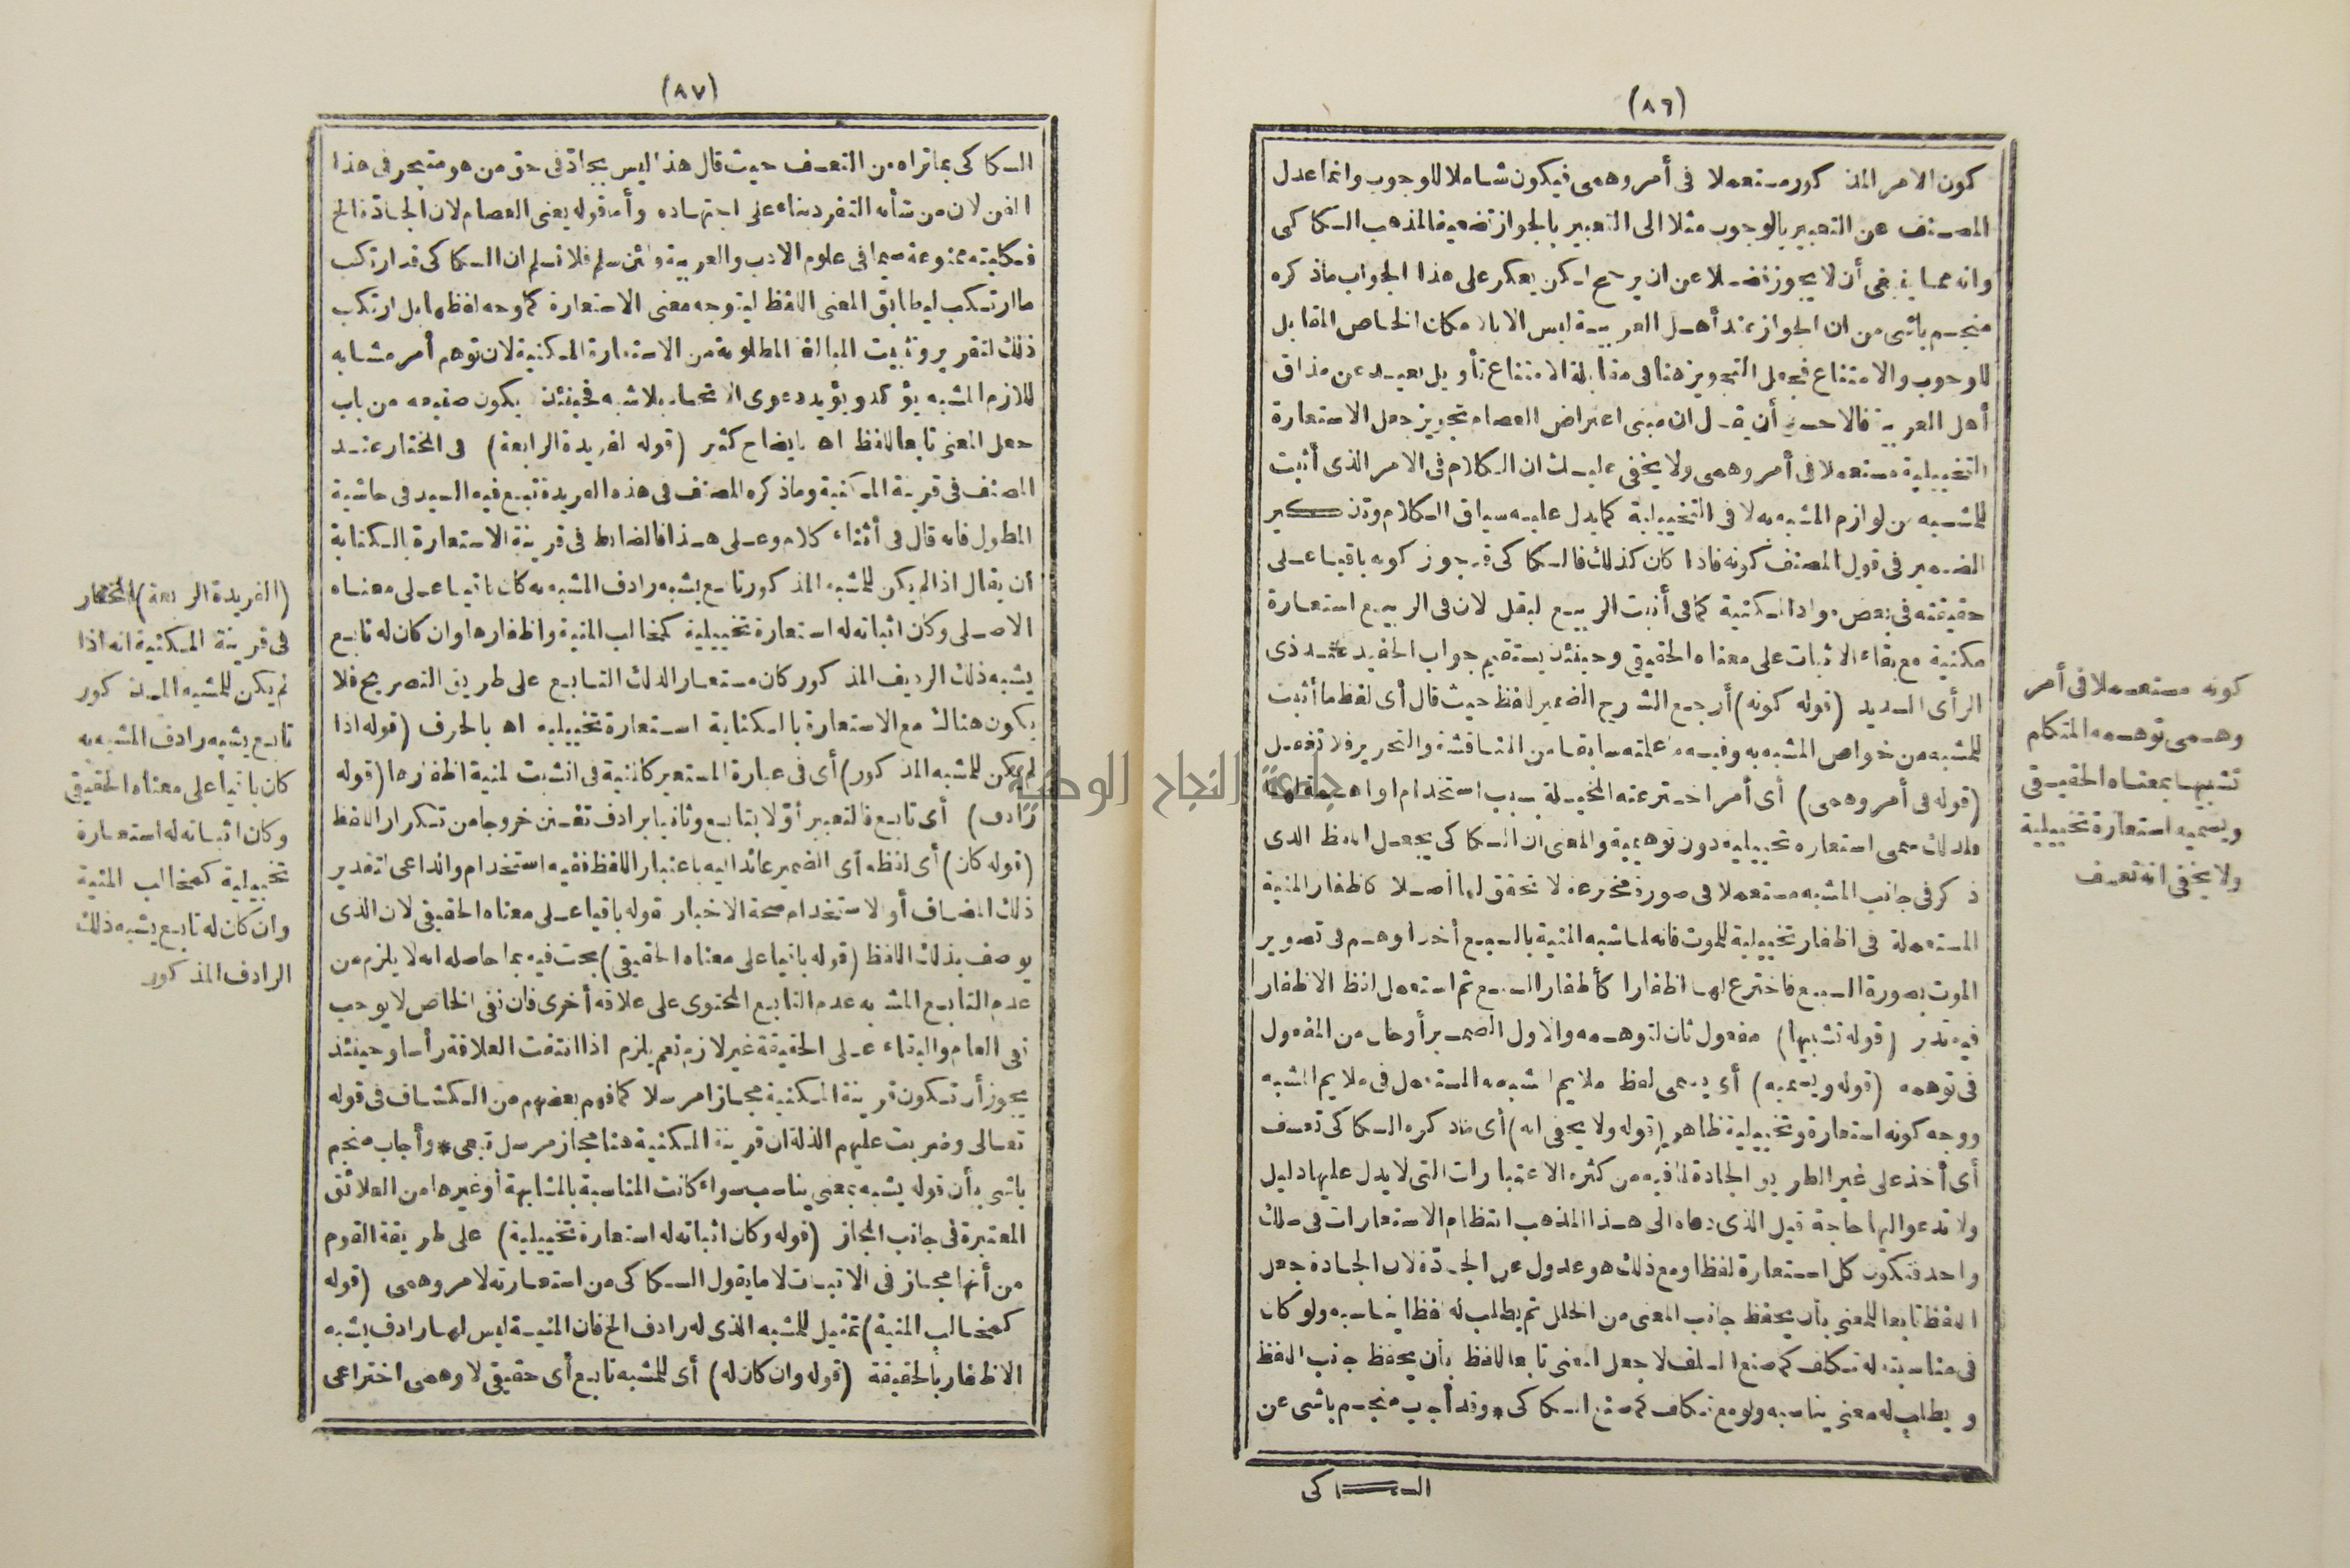 (٨٦)
كون الامر المذكور مستعملا فى أمر وهمى فيكون شاملا للوجوب وانما عدل
المصنف عن التعبير بالوجوب مثلا الى التعبير بالجواز تضعيفا لمذهب السكاكى
وانه مما ينبغى أن لا يجوز فضلا عن ان يرجح لكن يعكر على هذا الجواب ماذكره
منجم باشى من ان الجواز عند أهل العربية ليس الا بالامكان الخاص المقابل
للوجوب والامتناع فجعل التجويز هنا فى مقابلة الامتناع تأويل بعيد عن مذاق
أهل العربية فالاحسن أن يقال ان مبنى اعتراض العصام تجويز جعل الاستعارة
التخييلية مستعملا فى أمر وهمى ولا يخفى عليك ان الكلام فى الامر الذى أثبت
للمشبه من لوازم المشبه به لا فى التخييلية كما يدل عليه سياق الكلام وتذكير
الضمير فى قول المصنف كونه فاذا كان كذلك فالسكاكى قد جوز كونه باقيا على
حقيقته فى بعض مواد المكنية كما فى أنبت الربيع البقل لان فى الربيع استعارة
مكنية مع بقاء الاثبات على معناه الحقيقى وحينئذ يستقيم جواب الحفيد عند ذى
الرأى السديد (قوله كونه) أرجع الشرح الضمير للفظ حيث قال أى لفظ ما أثبت
للمشبه من خواص المشبه به وفيه ما علمته سابقا من المناقشة والتحرير فلا تغفل
(قوله فى أمر وهمى) أى أمر اخترعته المخيلة بسبب استخدام اواهمة لها
فلذلك سمى استعارة تخييلية دون توهيمية والمعنى ان السكاكى يجعل اللفظ الذى
ذكر فى جانب المشبه مستعملا فى صورة مخترعة لا تحقق لها أصلا كاظفار المنية
المستعملة فى اظفار تخييلية للموت فانه لما شبه المنية بالسبع أخذ الوهم فى تصوير
الموت بصورة السبع فاخترع لها اظفارا كأظفار السبع ثم استعمل لفظ الاظفار
فيه تدبر (قوله تشبيها) مفعول ثان لتوهمه والاول الضمير أو حال من المفعول
فى توهمه (قوله ويسميه) أى يسمى لفظ ملايم المشبه به المستعمل فى ملايم المشبه
ووجه كونه استعارة وتخييلية ظاهر (قوله ولا يخفى انه) أى ماذكره السكاكى تعسف
أى أخذ على غير الطريق الجادة لما فيه من كثرة الاعتبارات التى لا يدل عليها دليل
ولا تدعو اليها حاجة قيل الذى دعاه الى هذا المذهب انتظام الاستعارات فى سلك
واحد فتكون كل استعارة لفظا ومع ذلك هو عدول عن الجادة لان الجادة جعل
اللفظ تابعا للمعنى بأن يحفظ جانب المعنى من الخلل ثم يطلب له لفظا يناسبه ولو كان
فى مناسبته له تكلف كما صنع السلف لا جعل المعنى تابعا للفظ بأن يحفظ جانب اللفظ
ويطلب له معنى يناسبه ولو مع تكلف كما صنع السكاكى * وقد أجاب منجم باشى عن
السكاكى
كونه مستعملا فى أمر
وهمى توهمه المتكلم
تشبيها بمعناه الحقيقى
ويسميه استعارة تخييلية
ولا يخفى انه تعسف
(٨٧)
السكاكى بما تراه من التعسف حيث قال هذا ليس بجادّ فى حق من هو متبحر فى هذا
الفن لان من شأنه التفرد بناء على اجتهاده وأما قوله يعنى العصام لان الجادّة الخ
فكليته ممنوعة سيما فى علوم الادب والعربية ولئن سلم فلا نسلم ان السكاكى قد ارتكب
ما ارتكب ليطابق المعنى اللفظ ليتوجه معنى الاستعارة كما وجه لفظها بل ارتكب
ذلك لتقرير وتثبيت المبالغة المطلوبة من الاستعارة المكنية لان توهم أمر مشابه
للازم المشبه به يؤكد ويؤيد دعوى الاتحاد بلا شبه فحينئذ يكون صنيعه من باب
جعل المعنى تابعا للفظ اه بايضاح كثير (قوله الفريدة الرابعة) فى المختار عند
المصنف فى قرينة المكنية وماذكره المصنف فى هذه الفريدة تبع فيه السيد فى حاشية
المطول فانه قال فى أثناء كلام وعلى هذا فالضابط فى قرينة الاستعارة بالكناية
أن يقال اذا لم يكن للمشبه المذكور تابع يشبه رادف المشبه به كان باقيا على معناه
الاصلى وكان اثباته له استعارة تخييلية كمخالب المنية واظفارها وان كان له تابع
يشبه ذلك الرديف المذكور كان مستعارا لذلك التابع على طريق التصريح فلا
يكون هنالك مع الاستعارة بالكناية استعارة تخييلية اه بالحرف (قوله اذا
لم يكن للمشبه المذكور) أى فى عبارة المستعير كالمنية فى انشبت المنية اظفارها (قوله
رادف) أى تابع فالتعبير أوّلا بتابع وثانيا برادف تفنن خروجا من تكرار اللفظ
(قوله كان) أى لفظه أى الضمير عائد اليه باعتبار اللفظ ففيه استخدام والداعى لتقدير
ذلك المضاف أو الاستخدام صحة الاخبار بقوله باقيا على معناه الحقيقى لان الذى
يوصف بذلك اللفظ (قوله باقيا على معناه الحقيقى) بحث فيه بما حاصله انه لا يلزم من
عدم التابع المشبه عدم التابع المحتوى على علاقة أخرى فان نفى الخاص لا يوجب
نفى العام والبقاء على الحقيقة غير لازم نعم يلزم اذا انتفت العلاقة رأسا وحينئذ
يجوز أن تكون قرينة المكنية مجازا مرسلا كما فهم بعضهم من الكشاف فى قوله
تعالى وضربت عليهم الذلة ان قرينة المكنية هنا مجاز مرسل تبعى * وأجاب منجم
باشى بأن قوله يشبه بمعنى يناسب سواء كانت المناسبة بالمشابهة أو غيرها من العلائق
المعتبرة فى جانب المجاز (قوله وكان اثباته له استعارة تخييلية) على طريقة القوم
من أنها مجاز فى الاثبات لا ما يقول السكاكى من استعارته لامر وهمى (قوله
كمخالب المنية) تمثيل للمشبه الذى له رادف الخ فان المنية ليس لها رادف يشبه
الاظفار بالحقيقة (قوله وان كان له) أى للمشبه تابع أى حقيقى لا وهمى اختراعى
(الفريدة الرابعة) المختار
فى قرينة المكنية انه اذا
لم يكن للمشبه المذكور
تابع يشبه رادف المشبه به
كان باقيا على معناه الحقيقى
وكان اثباته له استعارة
تخييلية كمخالب المنية
وان كان له تابع يشبه ذلك
الرادف المذكور
جامعة النجاح الوطنية